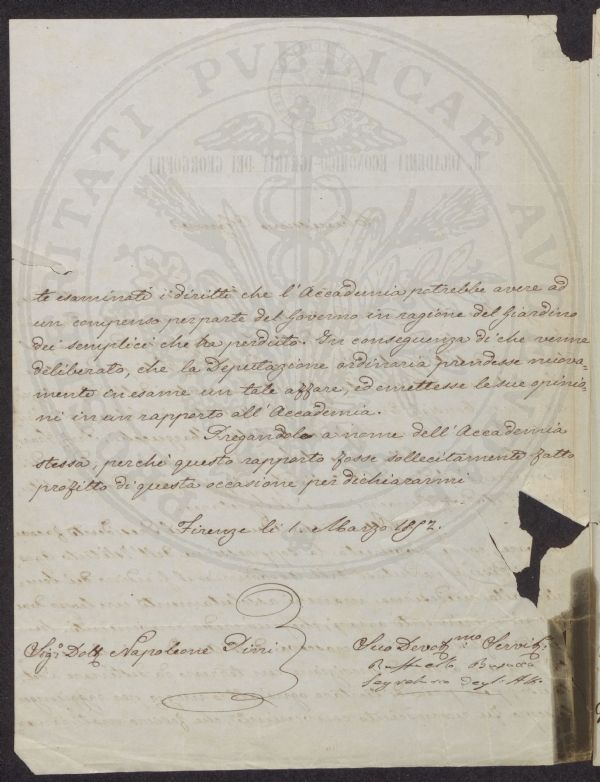 te esaminati i diritti che l'Accademia potrebbe avere ad
un compenso per parte del Governo in ragione del Giardino
dei semplici che ha perduto. In conseguenza di che venne
deliberato, che la Deputazione ordinaria prendesse nuova-
mente in esame un tale affare, ed emettesse le sue opinio-
ni in un rapporto all'Accademia.
Pregandolo a nome dell'Accademia
stessa, perchè questo rapporto fosse sollecitamente fatto
profitto di questa occasione per dichiararmi
Firenze li 1. Marzo 1852.
Sigr. Dott. Napoleone Pini
Suo Devotmo Servitre
Raffaello
Segretario degli Atti